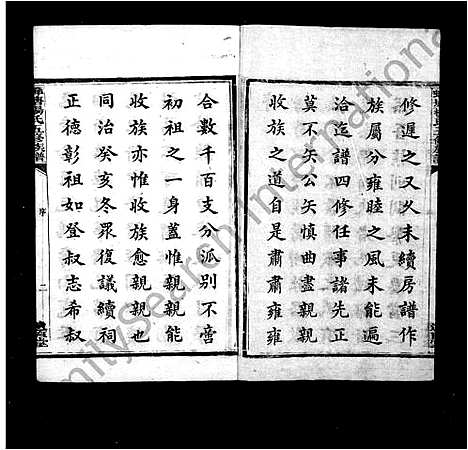 修遲之又久未續房譜作
族屬分雍睦之風未能遍
洽迄譜四修任事諸先正
莫不矢公矢慎曲盡親親
收族之道自是肅肅雍雍
合數千百支分派別不啻
初祖之一身蓋惟親親能
收族亦惟收族愈親親也
同治癸亥冬眾復議續祠
正德彰祖如登叔志希叔
氏五修族譜
序
二
FamilySearch International